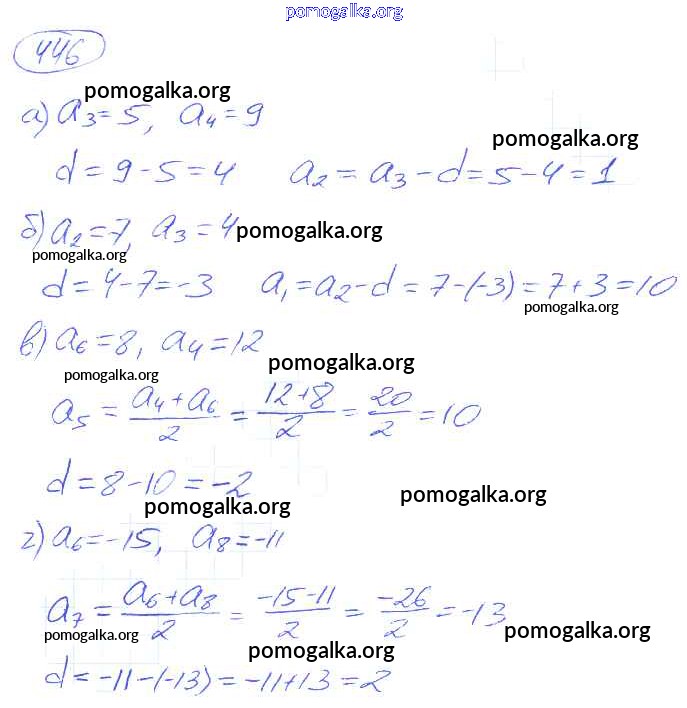 pomogalka.org
446
pomogalka.org
а) a₃ = 5, a₄ = 9
pomogalka.org
d = 9 - 5 = 4 a₂ = a₃ - d = 5 - 4 = 1
б) a₂ = 7, a₃ = 4 pomogalka.org
pomogalka.org
d = 4 - 7 = -3 a₁ = a₂ - d = 7 - (-3) = 7 + 3 = 10
pomogalka.org
в) a₆ = 8, a₄ = 12
pomogalka.org
pomogalka.org
a₅ = (a₄ + a₆)/2 = (12 + 8)/2 = 20/2 = 10
d = 8 - 10 = -2
pomogalka.org
pomogalka.org
г) a₆ = -15, a₈ = -11
a₇ = (a₆ + a₈)/2 = (-15 - 11)/2 = -26/2 = -13
pomogalka.org
pomogalka.org
pomogalka.org
d = -11 - (-13) = -11 + 13 = 2